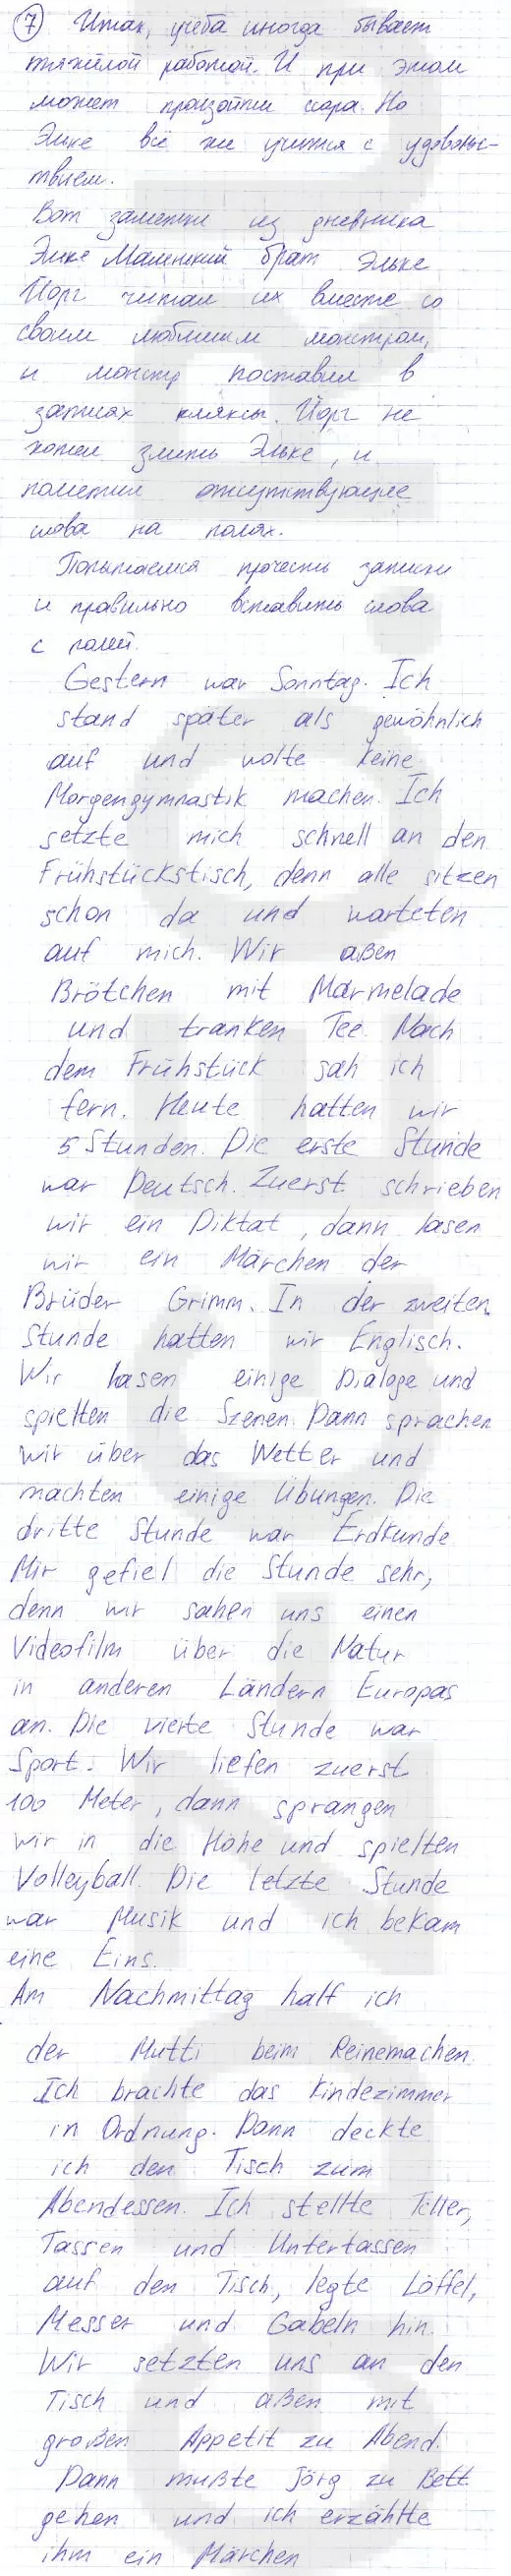 ⑦ Итак, учёба иногда бывает
тяжёлой работой. И при этом
может произойти ссора. Но
Эльке всё же учится с удоволь-
ствием.
Вот заметки из дневника
Эльке Маленький брат Эльке
Йорг читал их вместе со
своим любимым монстром,
и монстр поставил в
записях кляксы. Йорг не
хотел злить Эльке, и
пометил отсутствующие
слова на полях.
Попытаемся прочесть записи
и правильно вставить слова
с полей.
Gestern war Sonntag. Ich
stand später als gewöhnlich
auf und wolte keine
Morgengymnastik machen. Ich
setzte mich schnell an den
Frühstückstisch, denn alle sitzen
schon da und warteten
auf mich. Wir aßen
Brötchen mit Marmelade
und tranken Tee. Nach
dem Frühstück sah ich
fern. Heute hatten wir
5 Stunden. Die erste Stunde
war Deutsch. Zuerst schrieben
wir ein Diktat, dann lasen
wir ein Märchen der
Brüder Grimm. In der zweiten
Stunde hatten wir Englisch.
Wir lasen einige Dialoge und
spielten die Szenen. Dann sprachen
wir über das Wetter und
machten einige Übungen. Die
dritte Stunde war Erdkunde
Mir gefiel die Stunde sehr,
denn wir sahen uns einen
Videofilm über die Natur
in anderen Ländern Europas
an. Die vierte Stunde war
Sport. Wir liefen zuerst
100 Meter, dann sprangen
wir in die Höhe und spielten
Volleyball. Die letzte Stunde
war Musik und ich bekam
eine Eins.
Am Nachmittag half ich
der Mutti beim Reinemachen.
Ich brachte das Kindezimmer
in Ordnung. Dann deckte
ich den Tisch zum
Abendessen. Ich stellte Teller,
Tassen und Untertassen
auf den Tisch, legte Löffel,
Messer und Gabeln hin.
Wir setzten uns an den
Tisch und aßen mit
großen Appetit zu Abend.
Dann mußte Jörg zu Bett
gehen und ich erzählte
ihm ein Märchen